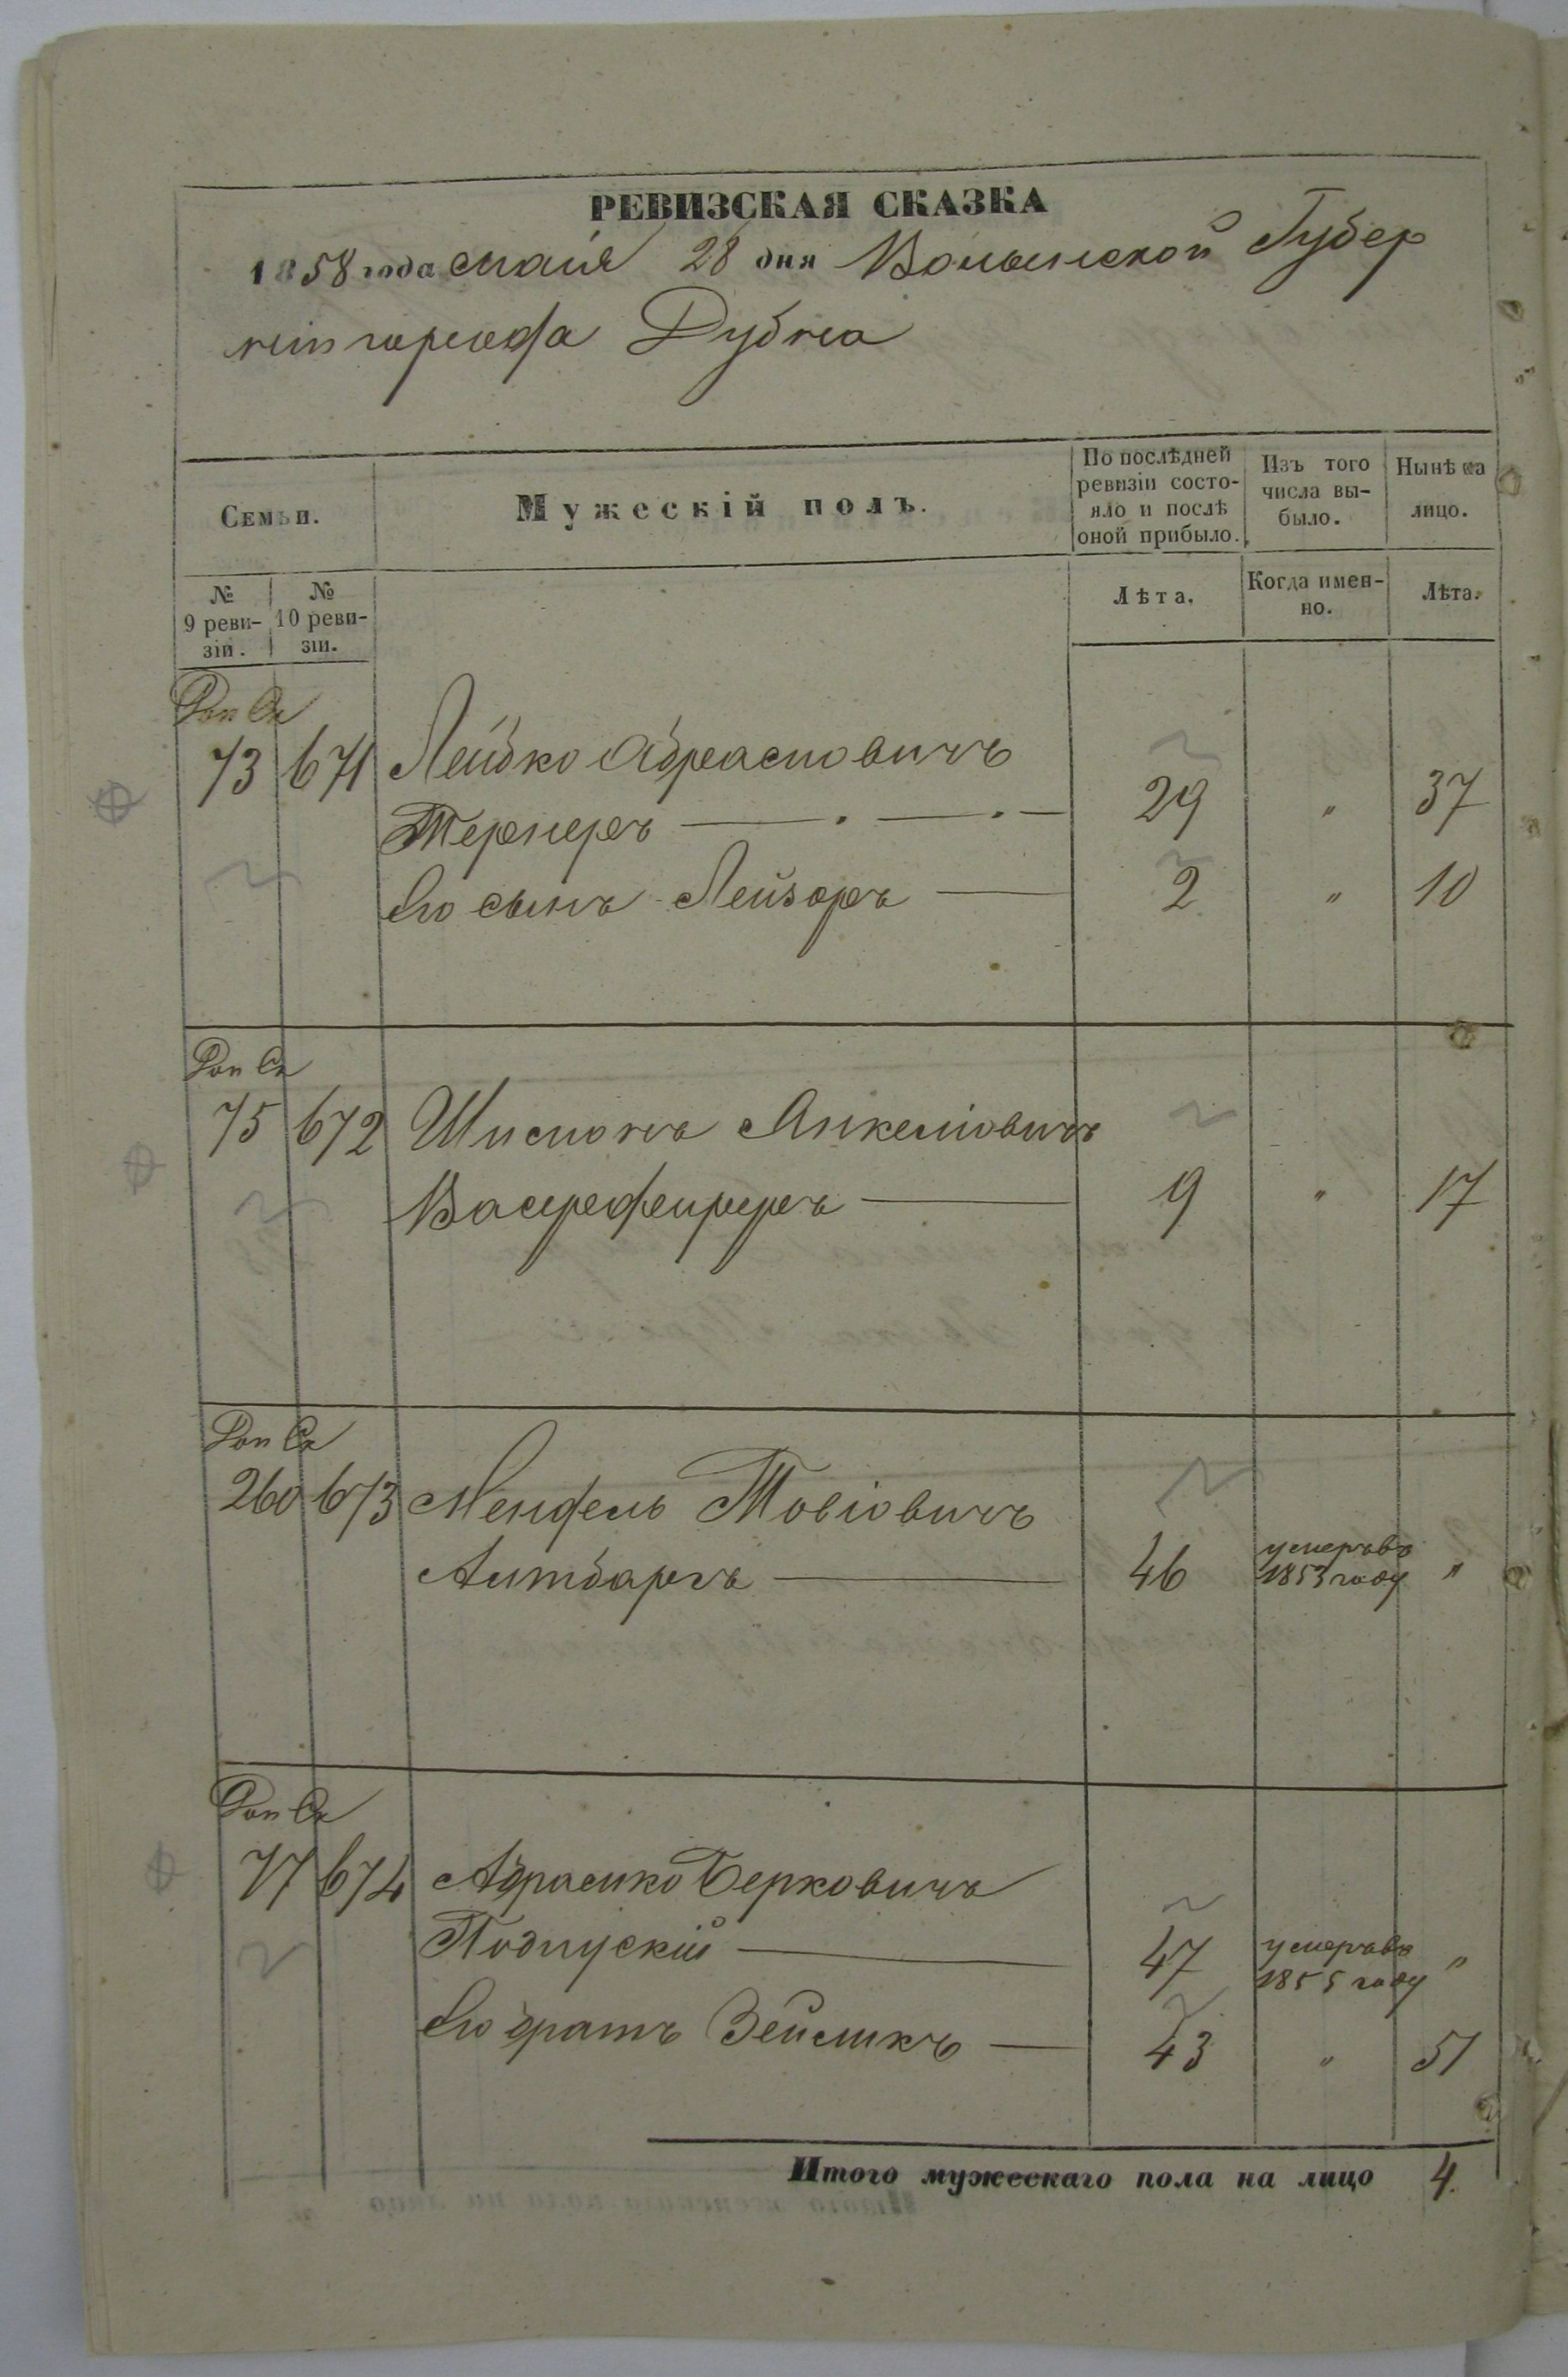 РЕВИЗСКАЯ СКАЗКА
1858 года маія 28 дня Волынской Губер
ніи города Дубна
Семьи.
Мужескій полъ.
По послѣдней ревизіи состо-
яло и послѣ оной прибыло.
Изъ того числа вы-
было.
Нынѣ на лицо.
№ 9 реви-
зіи.
№ 10 реви-
зіи.
Лѣта.
Когда имен-
но.
Лѣта.
Доп Ск
73 671 Лейбко Абрамовичъ
Тернеръ 29 " 37
Его сынъ Лейзоръ 2 " 10
Доп Ск
75 672 Шимонъ Янкелiовичъ
9 " 17
Доп Ск
260 673 Мендель Товіовичъ
Литбаръ 46 умеръ въ 1853 году "
Доп Ск
77 674 Абрамко Берковичъ
47 умеръ въ 1855 году "
Его братъ Зейликъ 43 " 51
Итого мужескаго пола на лицо 4.